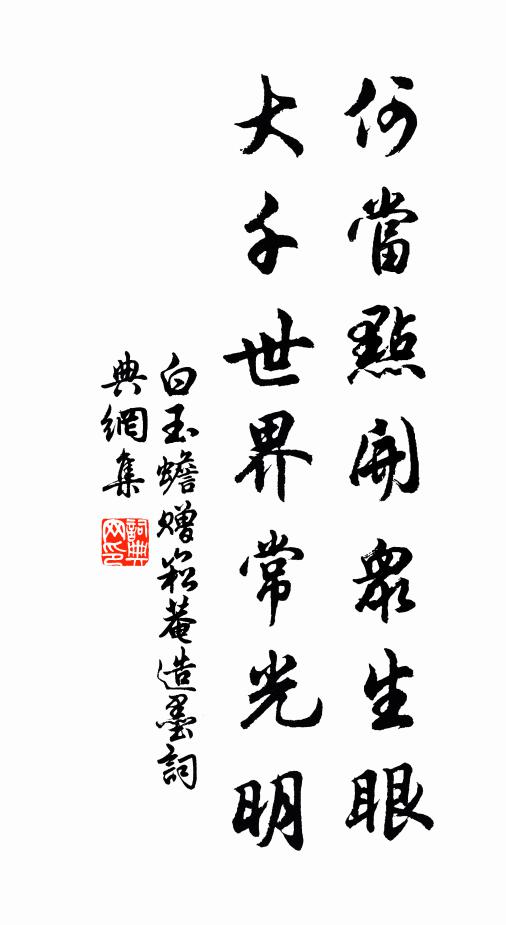 何當點開眾生眼
大千世界常光明
白玉蟾贈崧菴造墨詞
典網集
詞典網印